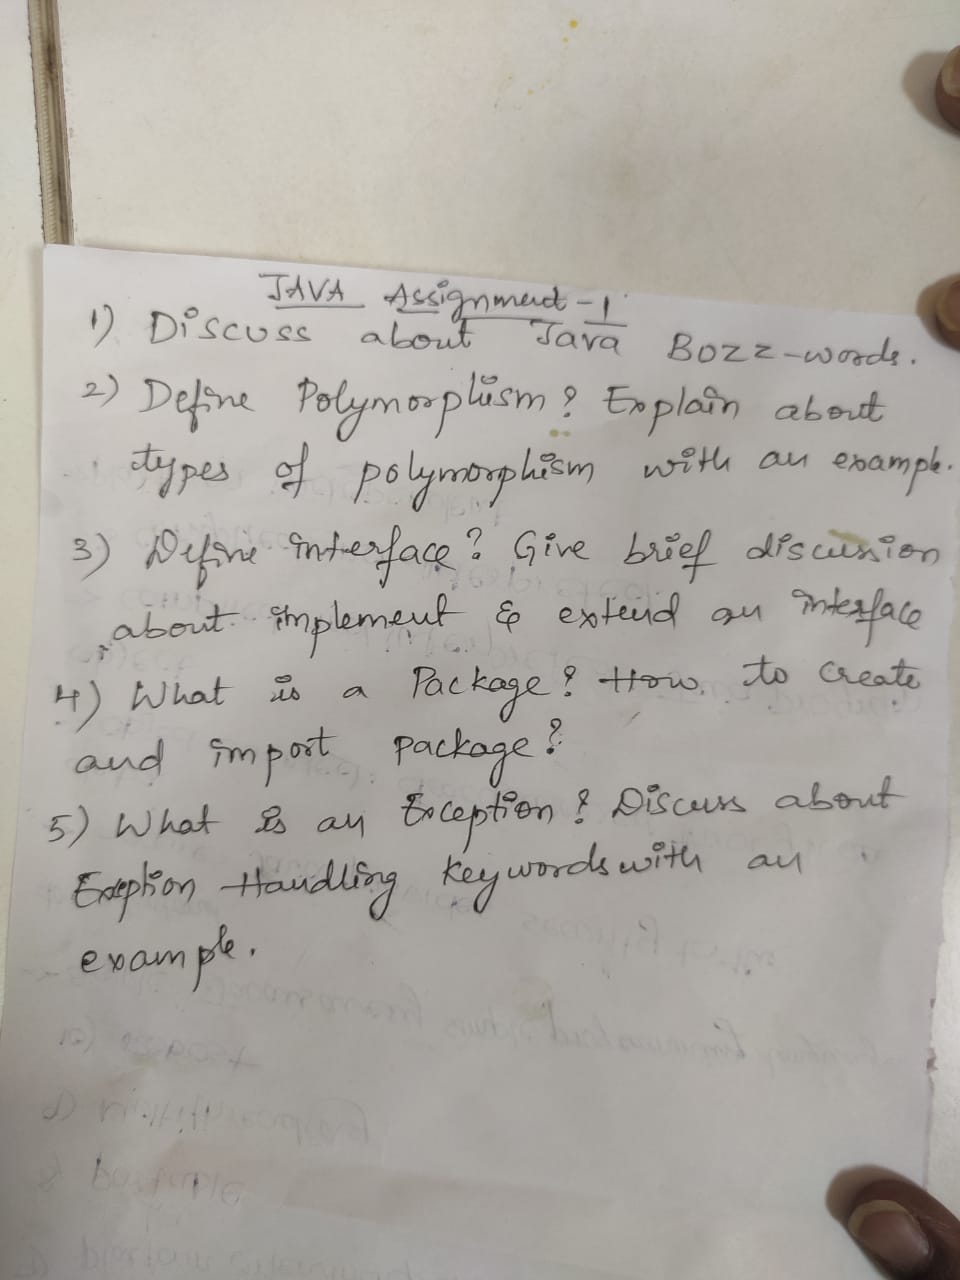 JAVA Assignment - 1
1) Discuss about Java Bozz-words.
2) Define Polymorphism? Explain about
types of polymorphism with an example.
3) Define interface? Give brief discussion
about implement & extend an interface
4) What is a Package? How to create
and import package?
5) What is an Exception? Discuss about
Exception Handling keywords with an
example.